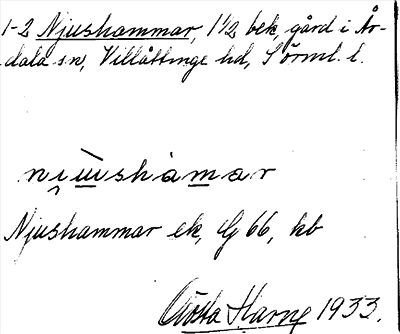 1-2 Njushammar, 1 1/2 bek, gård i År-
dala sn, Villåttinge hd, Sörml. l.
ni̯ùshàmar
Njushammar ek, G 66, kb
Gösta Harne 1933.